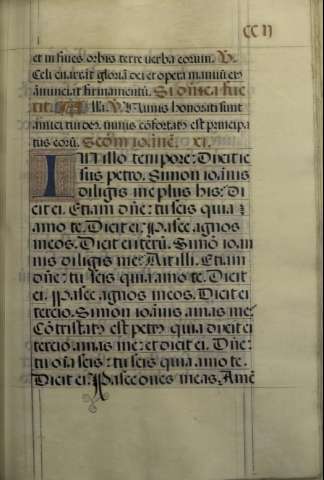 CC II
et in fines orbis terre verba eorum. V.
Celi enarrāt gloriā dei et opera manuū eiꝰ
annunciat firmamentū. Si onica fue
rit. Alla. V. Nimis honorati sunt
amici tui deꝰ. nimis cōfortatꝰ est principa
tus eorū. Scdm ioānē. xi.
In illo tempore: Dixit ie
sus petro. Simon ioānis
diligis me plus his: Di
cit ei. Etiam dñe: tu scis quia
amo te. Dicit ei: Pasce agnos
meos. Dicit ei iterū. Simō ioan
nis diligis me: Ait illi. Etiam
dñe: tu scis quia amo te. Dicit
ei. Pasce agnos meos. Dicit ei
tercio. Simon ioānis amas me:
Cōtristatꝰ est petrꝰ quia dixit ei
tercio amas me: et dicit ei. Dñe:
tu oīa scis: tu scis quia amo te.
Dicit ei: Pasce oves meas. Amē